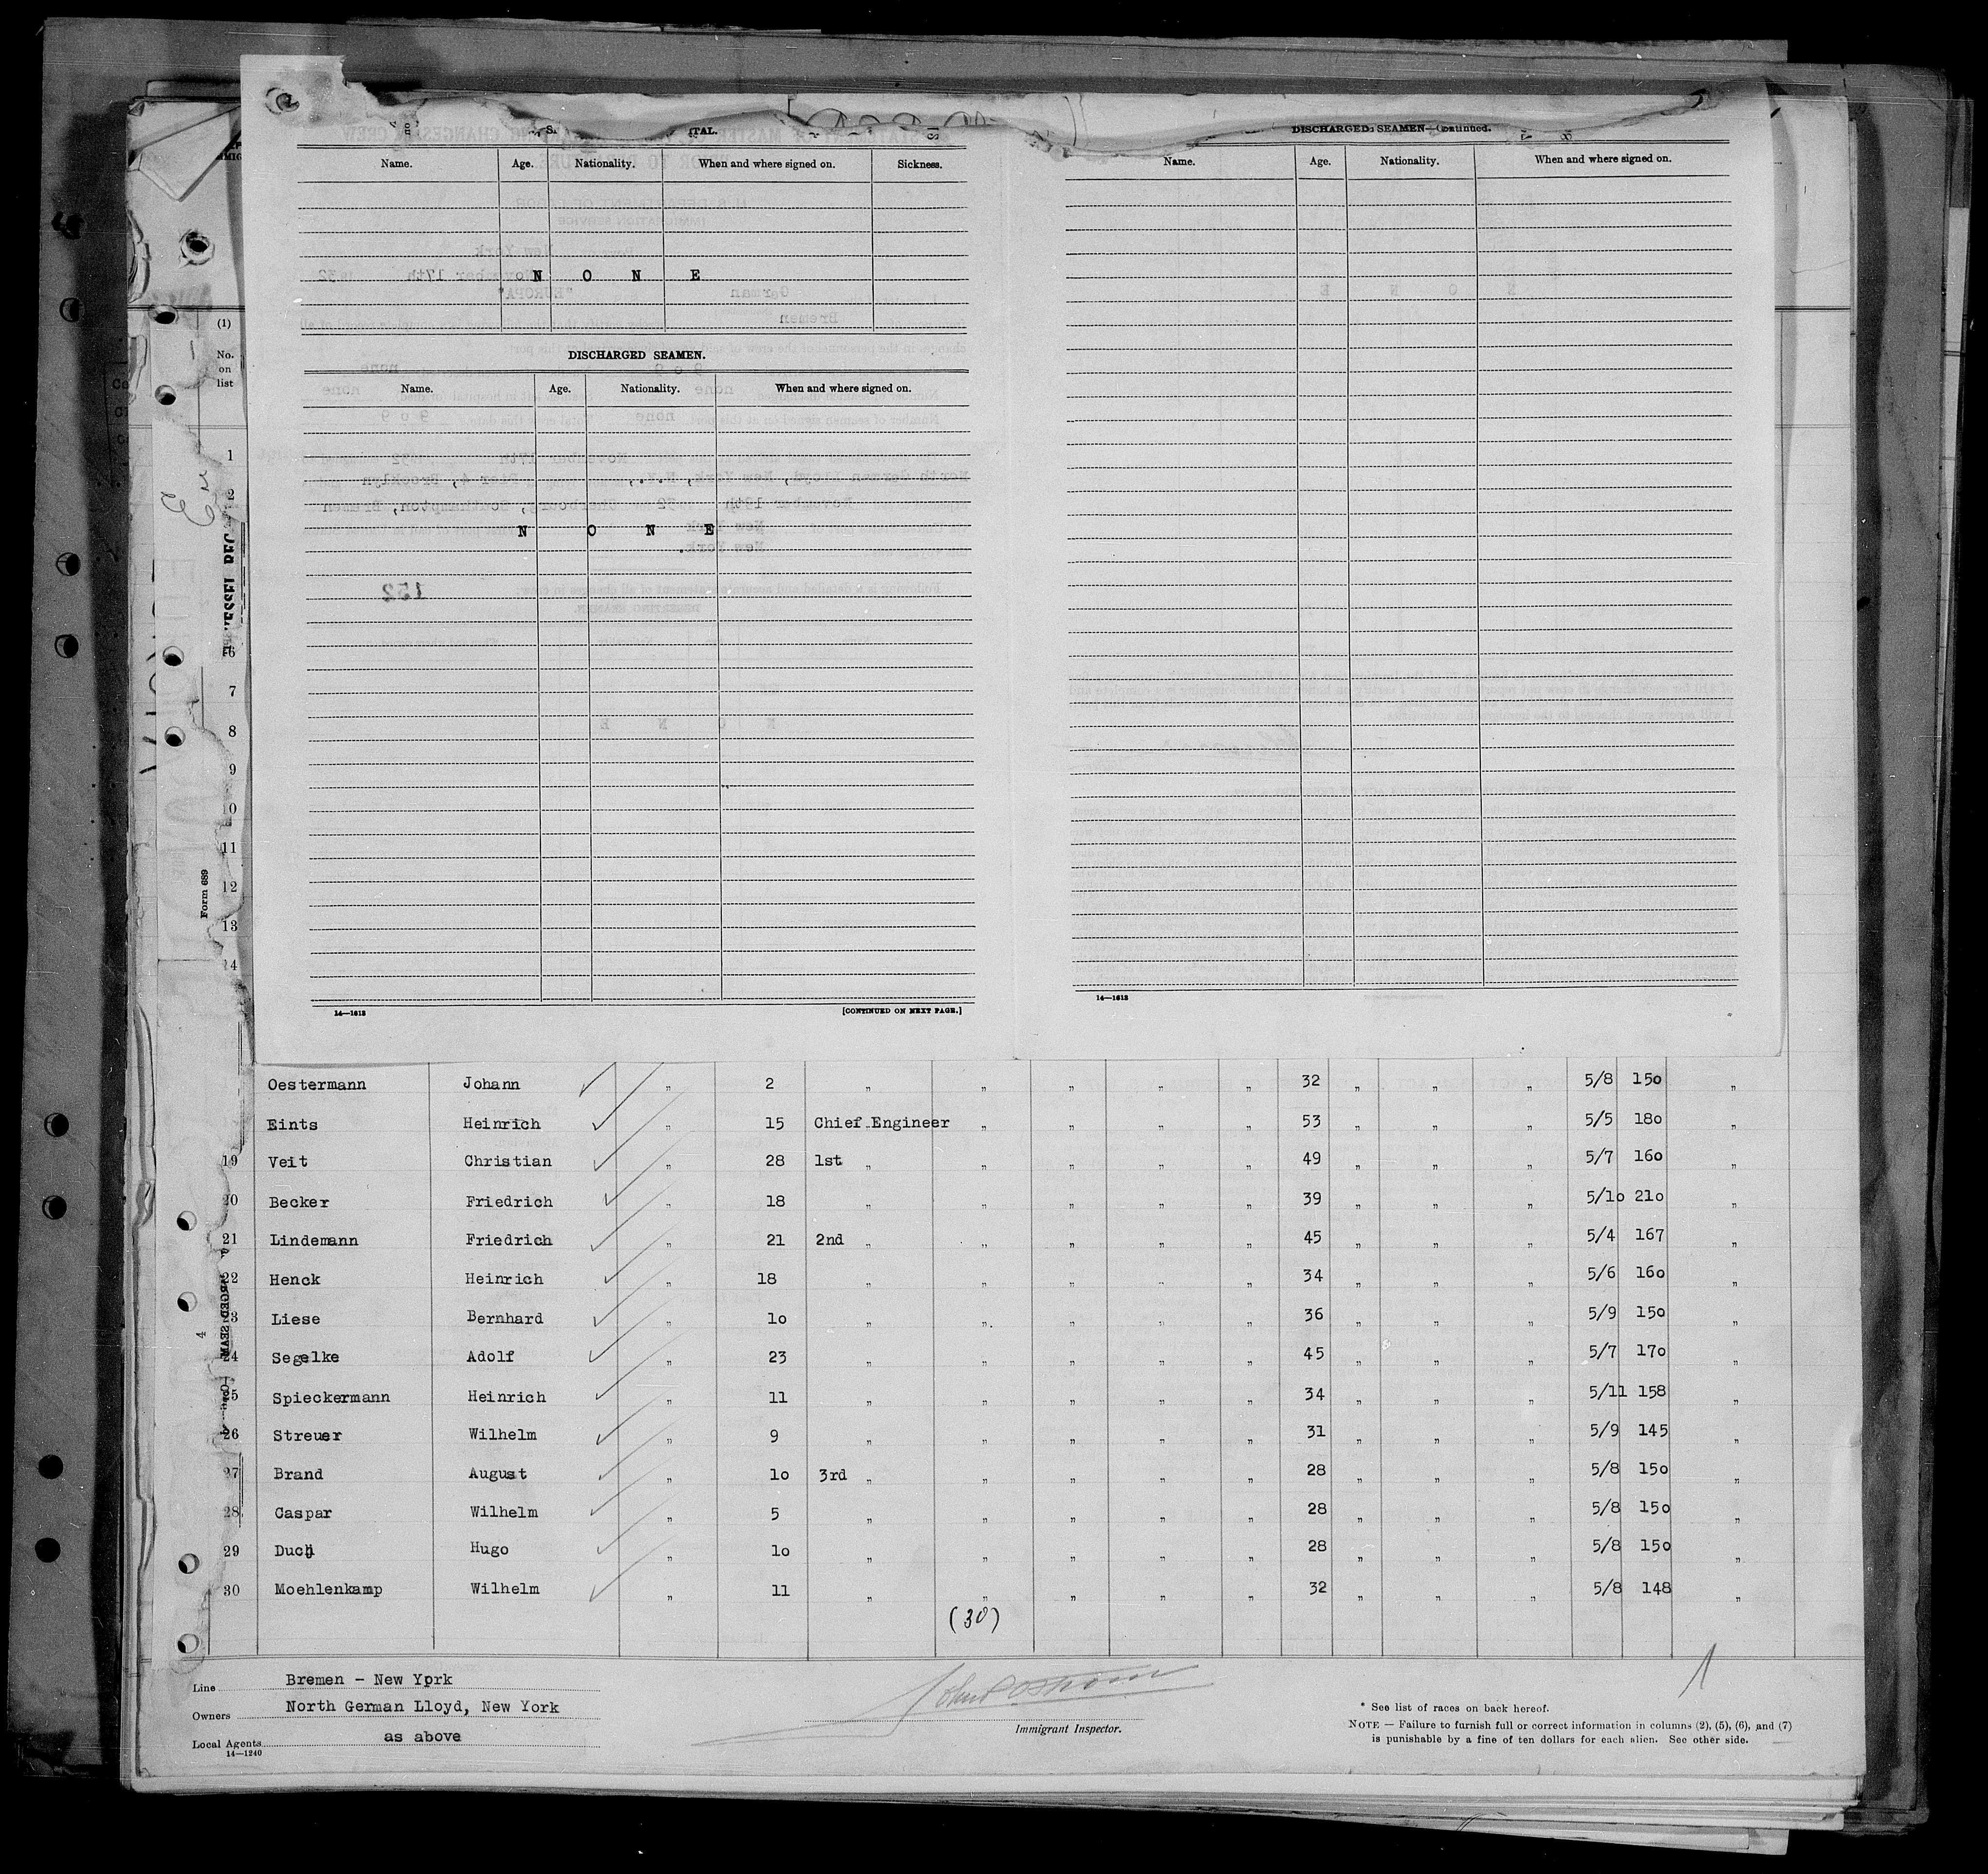 ITAL.
Name. Age. Nationality. When and where signed on. Sickness.
N O N E
DISCHARGED SEAMEN.
Name. Age. Nationality. When and where signed on.
N O N E
14—1613 [CONTINUED ON NEXT PAGE.]
DISCHARGED SEAMEN—Continued.
Name. Age. Nationality. When and where signed on.
14—1613
(1)
No.
on
list
1
2
6
7
8
9
10
11
12
13
14
Form 689
Oestermann Johann " 2 " " " " " 32 " " " 5/8 150 "
Eints Heinrich " 15 Chief Engineer " " " " 53 " " " 5/5 180 "
19 Veit Christian " 28 1st " " " " " 49 " " " 5/7 160 "
20 Becker Friedrich " 18 " " " " " 39 " " " 5/10 210 "
21 Lindemann Friedrich " 21 2nd " " " " " 45 " " " 5/4 167 "
22 Henck Heinrich " 18 " " " " " 34 " " " 5/6 160 "
3 Liese Bernhard " 10 " " " " " 36 " " " 5/9 150 "
24 Segelke Adolf " 23 " " " " " 45 " " " 5/7 170 "
5 Spieckermann Heinrich " 11 " " " " " 34 " " " 5/11 158 "
26 Streuer Wilhelm " 9 " " " " " 31 " " " 5/9 145 "
27 Brand August " 10 3rd " " " " " 28 " " " 5/8 150 "
28 Caspar Wilhelm " 5 " " " " " 28 " " " 5/8 150 "
29 Hugo " 10 " " " " " 28 " " " 5/8 150 "
30 Moehlenkamp Wilhelm " 11 " " " " " 32 " " " 5/8 148 "
(30)
Line Bremen - New York
Owners North German Lloyd, New York
Local Agents as above
14—1240
Immigrant Inspector.
* See list of races on back hereof.
NOTE — Failure to furnish full or correct information in columns (2), (5), (6), and (7)
is punishable by a fine of ten dollars for each alien. See other side.